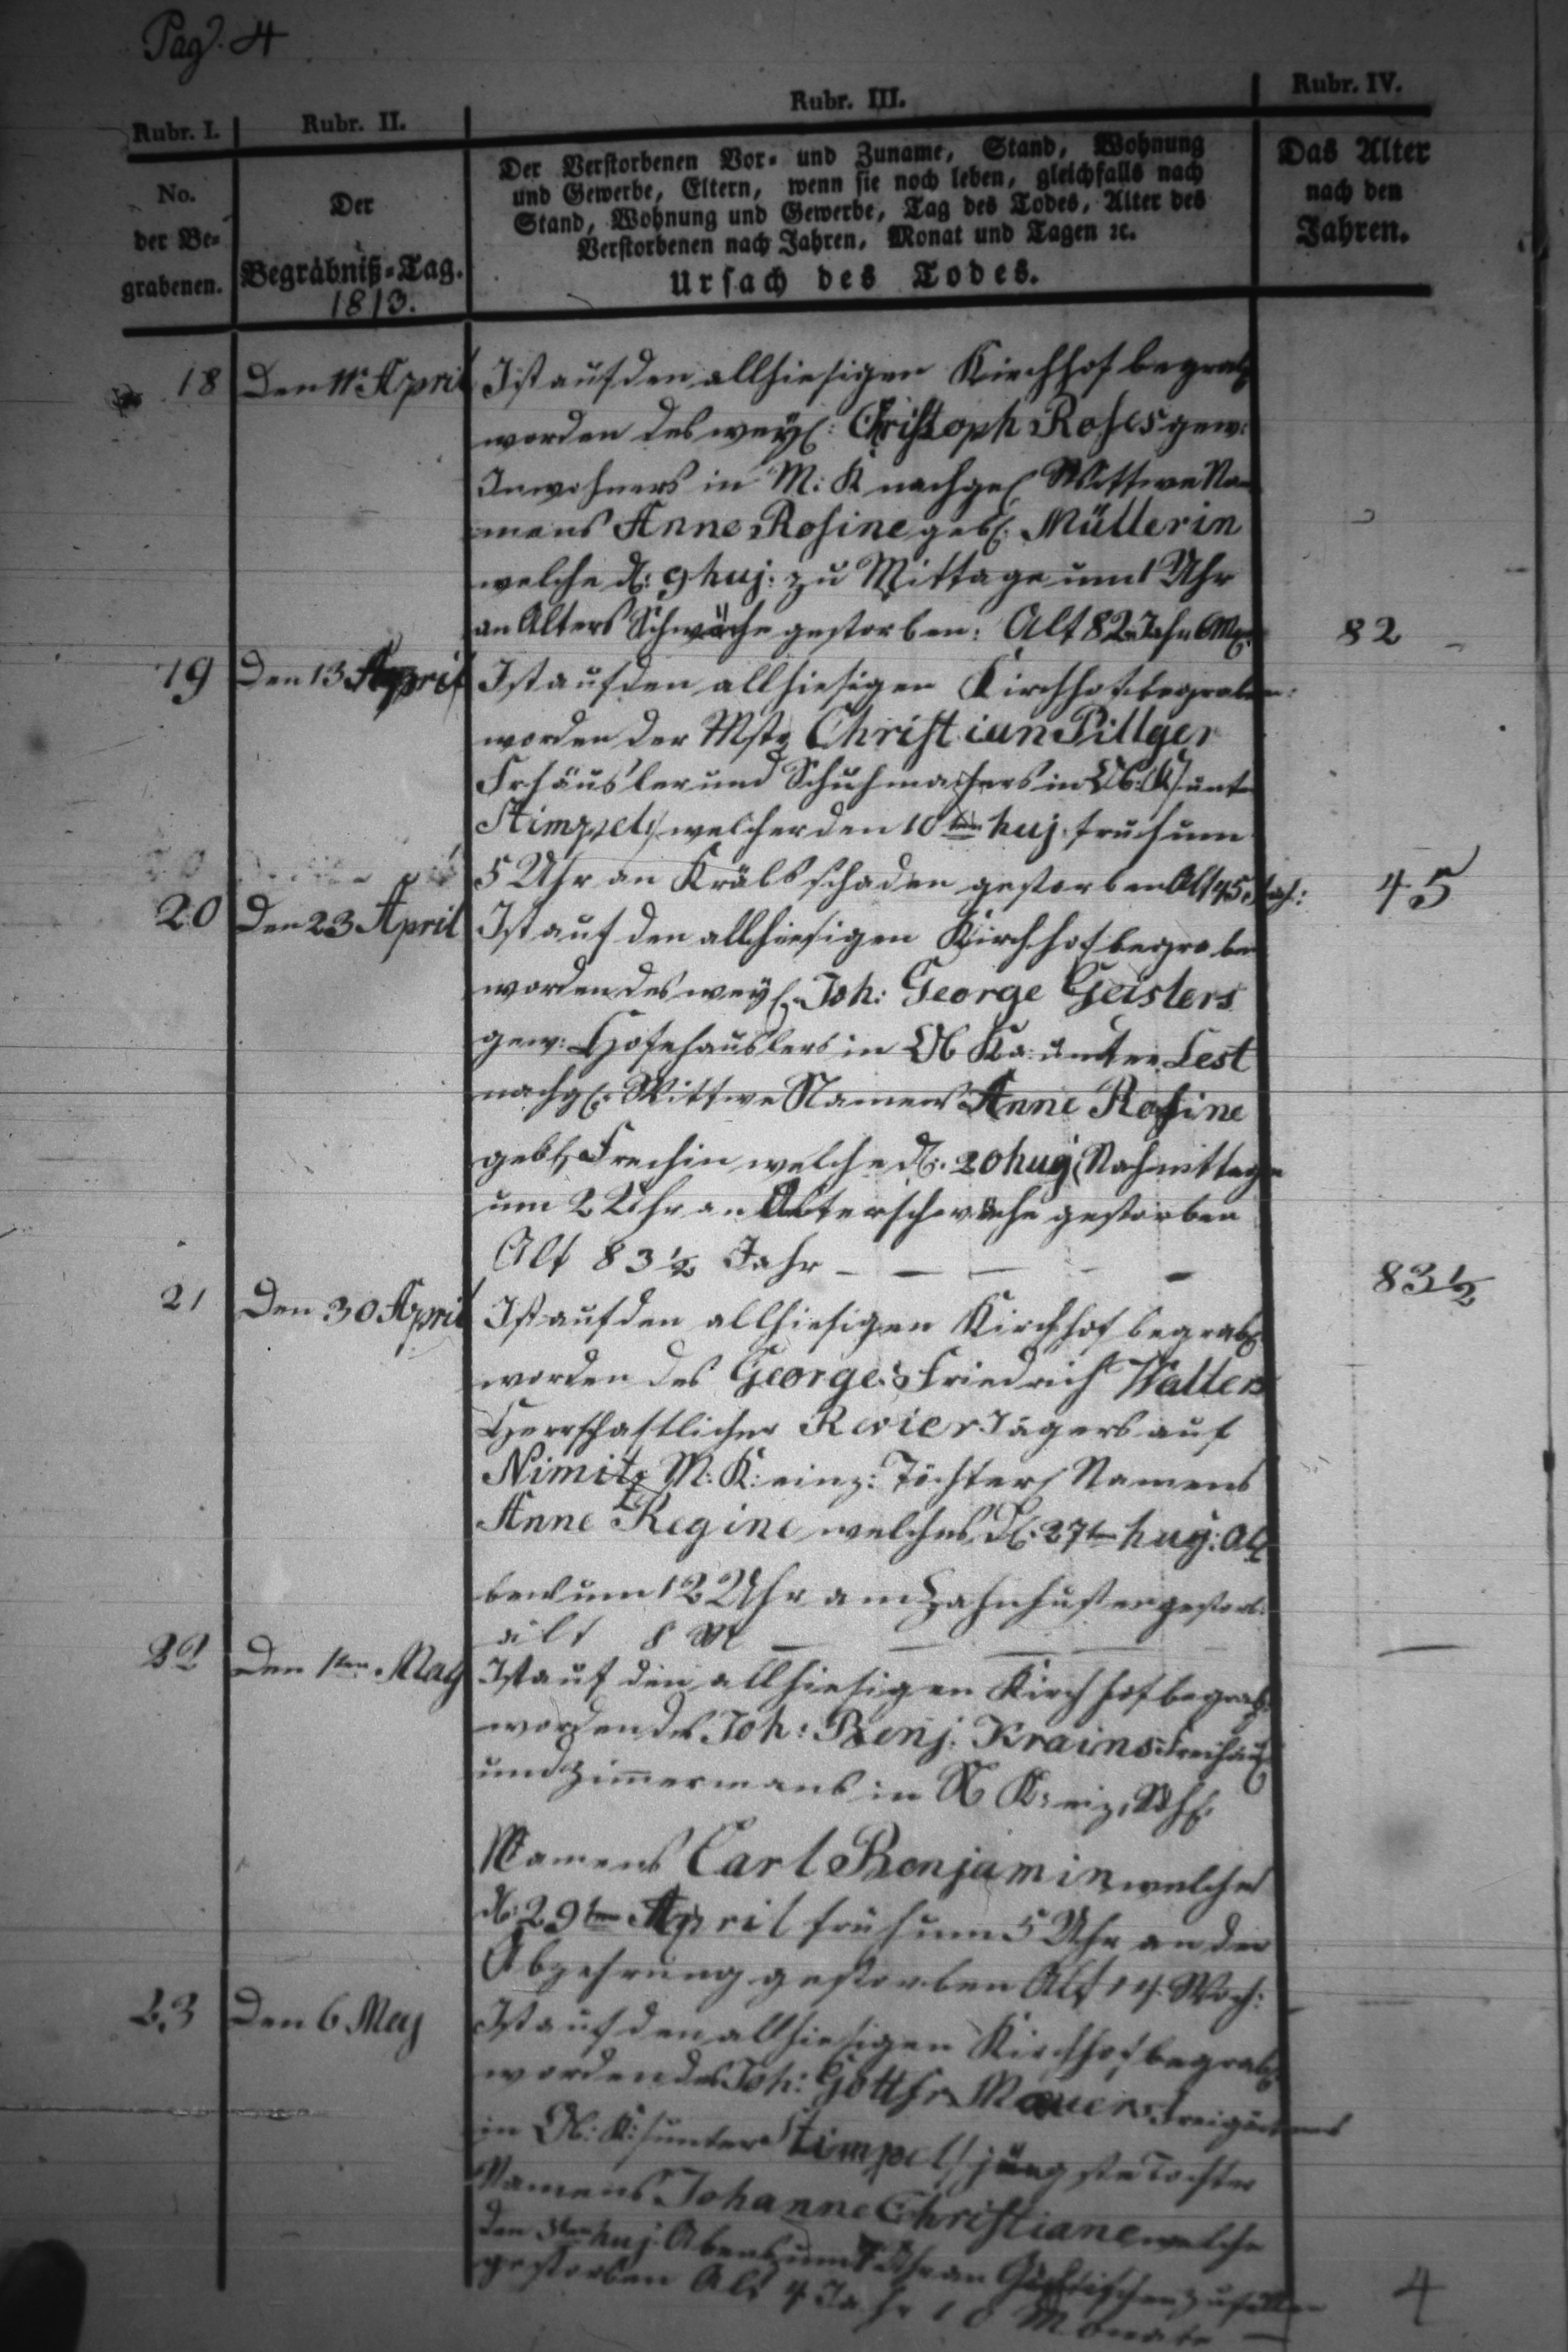 Pag. 4
Rubr. I.
Rubr. II.
Rubr. III.
Rubr. IV.
No.
der Be-
grabenen.
Der
Begräbniß-Tag.
1813.
Der Verstorbenen Vor- und Zuname, Stand, Wohnung
und Gewerbe, Eltern, wenn sie noch leben, gleichfalls nach
Stand, Wohnung und Gewerbe, Tag des Todes, Alter des
Verstorbenen nach Jahren, Monat und Tagen ꝛc.
Ursach des Todes.
Das Alter
nach den
Jahren.
18 Den 11. April Ist auf den allhiesigen Kirchhof begrab
worden des weyl: Christoph Roses gew:
Inwohners in M: K nachgel Wittwe Na
mens Anne Rosine geb: Müllerin
welche d: 9 huj: zu Mittage um 1 Uhr
an Alters Schwäche gestorben: Alt 82 Jahr 6 M 82
19 Den 13 April Ist auf den allhiesigen Kirchhof begraben:
worden der Mstr Christian Pillger
Frhäusler und Schuhmachers in Ob: K unt
Stimpel welcher den 10ten huj. fruh um
5 Uhr an Kräbsschaden gestorben Alt 45 Jah: 45
20 Den 23 April Ist auf den allhiesigen Kirchhof begrabe
worden des weyl. Joh: George Geislers
gew: Hofehäuslers in Ob Ka: unter Lest
nachgl: Wittwe Namens Anne Rosine
geb Frechin welche d: 20 huj Nachmittage
um 2 Uhr an Alterschwäche gestorben
Alt 83 1/2 Jahr – – – – 83 1/2
21 Den 30 April Ist auf den allhiesigen Kirchhof begrab
worden des George Friedrich Walters
Herrschaftlicher Revier Jägers auf
Nimitz M: K: einz: Töchterl Namens
Anne Regine welches d: 27t huj: A
bend um 12 Uhr am Zahnhusten gestorb:
alt 8 M — — — —
22 Den 1ten May Ist auf den allhiesigen Kirchhof begrab
worden des Joh: Benj: Krains Freihäusl
und Zimmermans in K:
Namens Carl Benjamin welches
d: 29ten April früh um 5 Uhr an der
Abzehrung gestorben Alt 14 Woch: –
23 Den 6 May Ist auf den allhiesigen Kirchhof begrab
worden des Joh: Gottfr Mauers Freigärtners
in Ob: K: unter Stimpel jüngste Tochter
Namens Johanne Christiane welche
den 3ten huj. Abends um Uhr an Gichtischen zufällen
gestorben Alt 4 Jahr 10 Monate — 4